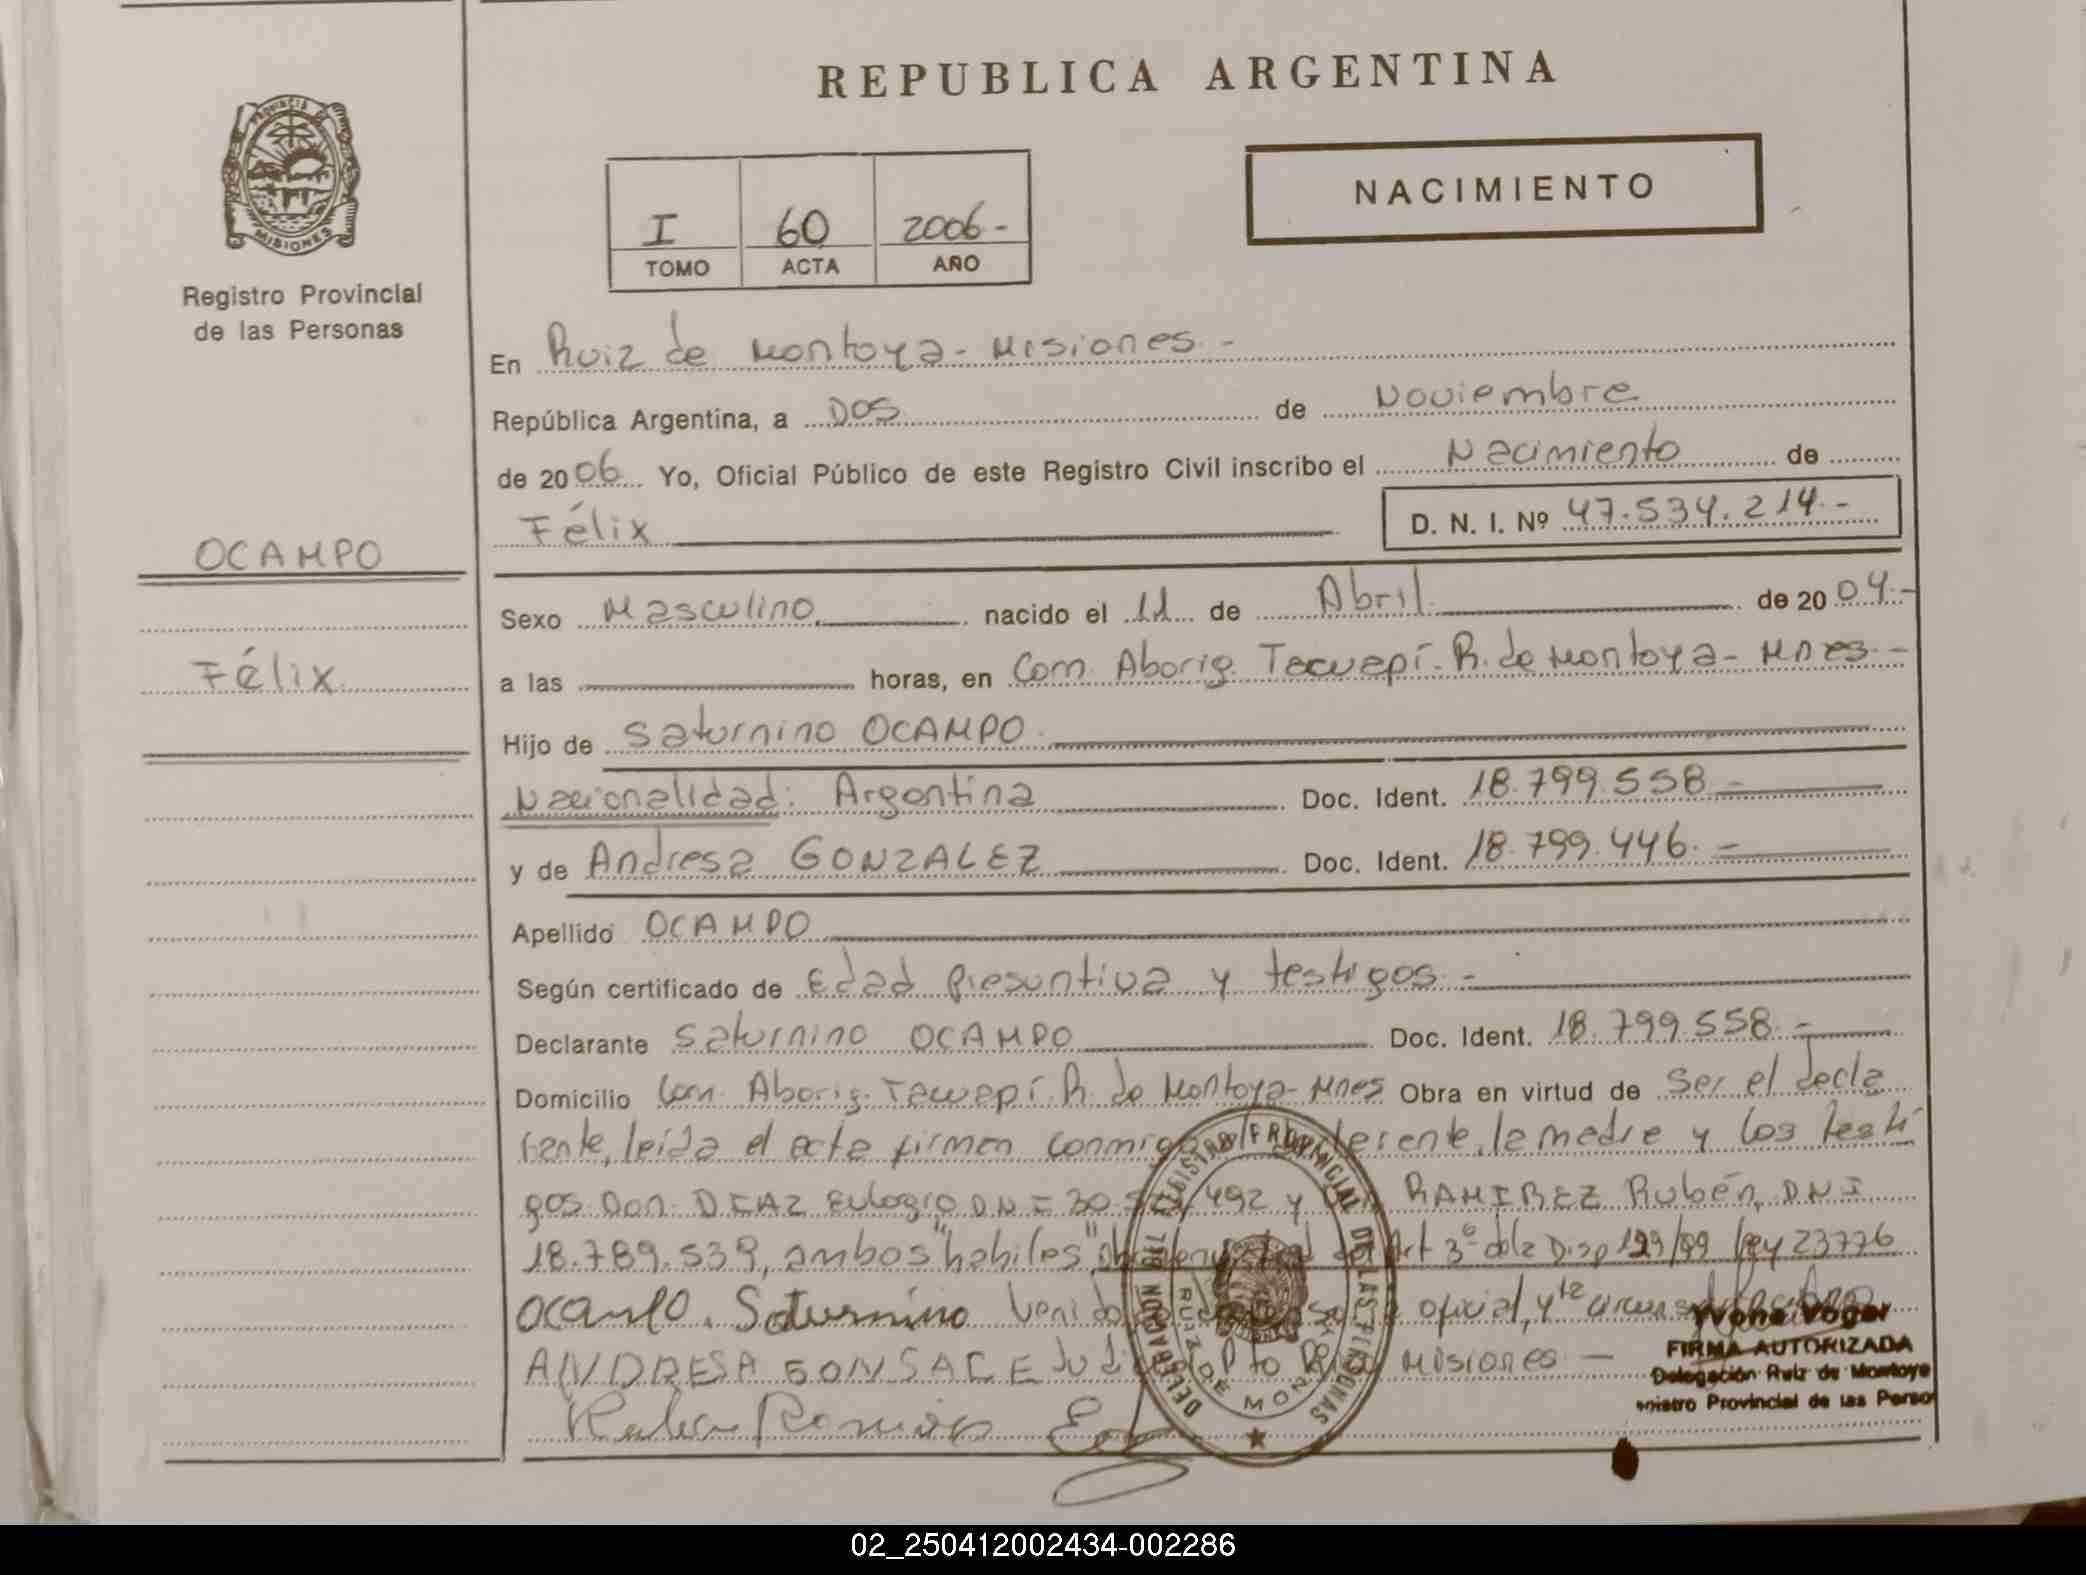 REPUBLICA ARGENTINA
PROVINCIA
MISIONES
Registro Provincial
de las Personas
I 60 2006-
TOMO ACTA AÑO
NACIMIENTO
En Ruiz de Montoya - Misiones. -
República Argentina, a Dos de Noviembre
de 2006 Yo, Oficial Público de este Registro Civil inscribo el Nacimiento de
Félix D. N. I. Nº 47.534.214.-
OCAMPO
Félix
Sexo Masculino nacido el 11 de Abril de 2004.-
a las horas, en Com. Aborig. Tacuapí. R. de Montoya - Mnes. -
Hijo de Saturnino OCAMPO.
Nacionalidad: Argentina Doc. Ident. 18.799.558 -
y de Andresa GONZALEZ Doc. Ident. 18.799.446. -
Apellido OCAMPO
Según certificado de Edad Presuntiva y testigos. -
Declarante Saturnino OCAMPO Doc. Ident. 18.799.558. -
Domicilio Com. Aborig. Tacuapí. R. de Montoya - Mnes Obra en virtud de Ser el decla
rante, leída el acta firman conmigo la madre y los testi
gos Don. DIAZ Eulogio DNI 30. 492 y RAMIREZ Rubén, DNI
18.789.539, ambos "habiles" Art 3º de la Disp 199/99 ley 23776
ocampo. Saturnino oficial, y
ANDRESA GONSALE Misiones -
DELEGACION
REGISTRO PROVINCIAL DE LAS PERSONAS
RUIZ DE MONTOYA
Yvone Voger
FIRMA AUTORIZADA
Delegación Ruiz de Montoya
Provincial de las Perso
02_250412002434-002286